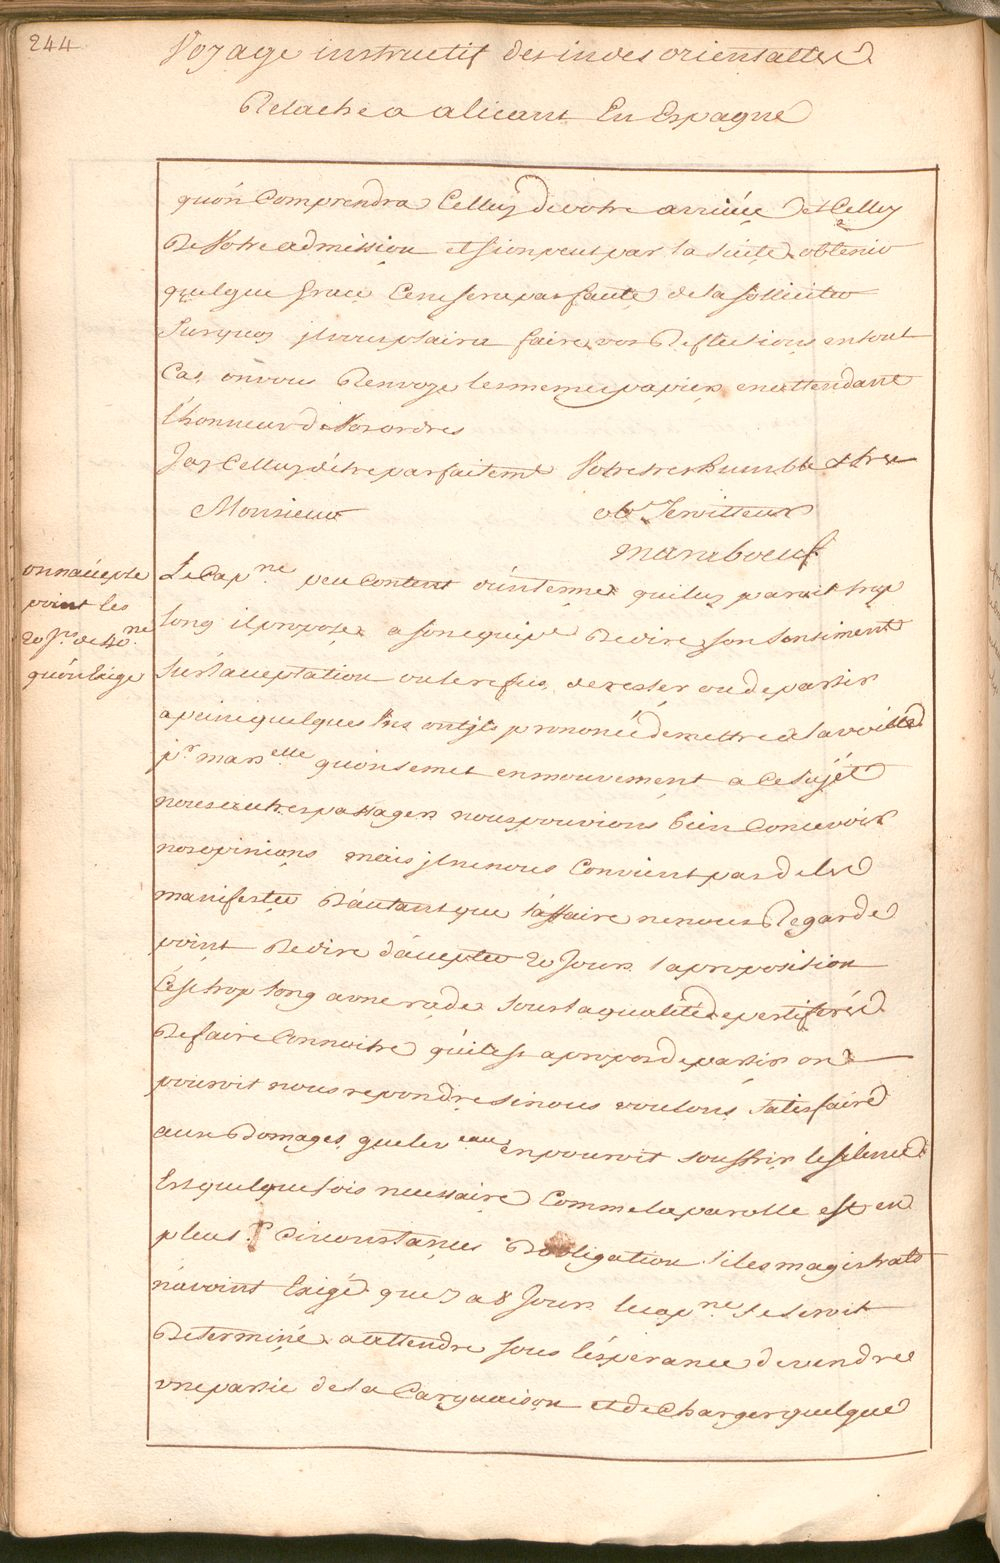 244
Voyage instructif des indes orientalles
Relache a alicant En Espagne
quón Comprendra Celluy de votre arriuée et Celluy
De Votre admission et sion peut par la suite obtenir
quelque grace Ce ne sera pas faute de la solliciter
Surquoy il vous plaira faire vos Reflections en tout
Cas on vous Renvoye les memes papiers en attendant
l'honneur de Vos ordres
Jay Celluy d'être parfaitemt Votre tres humble & tres
Monsieur obt Serviteur
maraboeuf
onnacépte
point les
20 Jrs de 40ne
quón Exige
Le Capne peu Content du terme qui luy parait trop
long il propose a son equipe De dire son Sentiment
sur lacceptation ou le refus de rester ou de partir
a peine quelques uns ont ils prononcé de mettre a la voille
pr marselle quon se met en mouvement a Ce Sujét
nous autres passagers nous pouvions bien Concevoir
nos opinions mais il ne nous Convient pas de les
manifester D'autant que l'affaire ne nous Regarde
point De dire d'accepter 20 Jours la proposition
C'est trop long a une rade sous la qualité de pestiferés
De faire Connoitre qu'il est a propos de partir on
pouroit nous repondre si nous voulons Satisfaire
aux Domages que le veau en pouroit souffrir le silence
Est quelque fois necessaire Comme la parolle est en
pleusrs Circonstances D'obligation si les magistrats
n'avoint Exigé que 7 a 8 Jours le capne se seroit
Determiné a attendre sous l'ésperance de vendre
une partie de la Carguaison et de Charger quelque